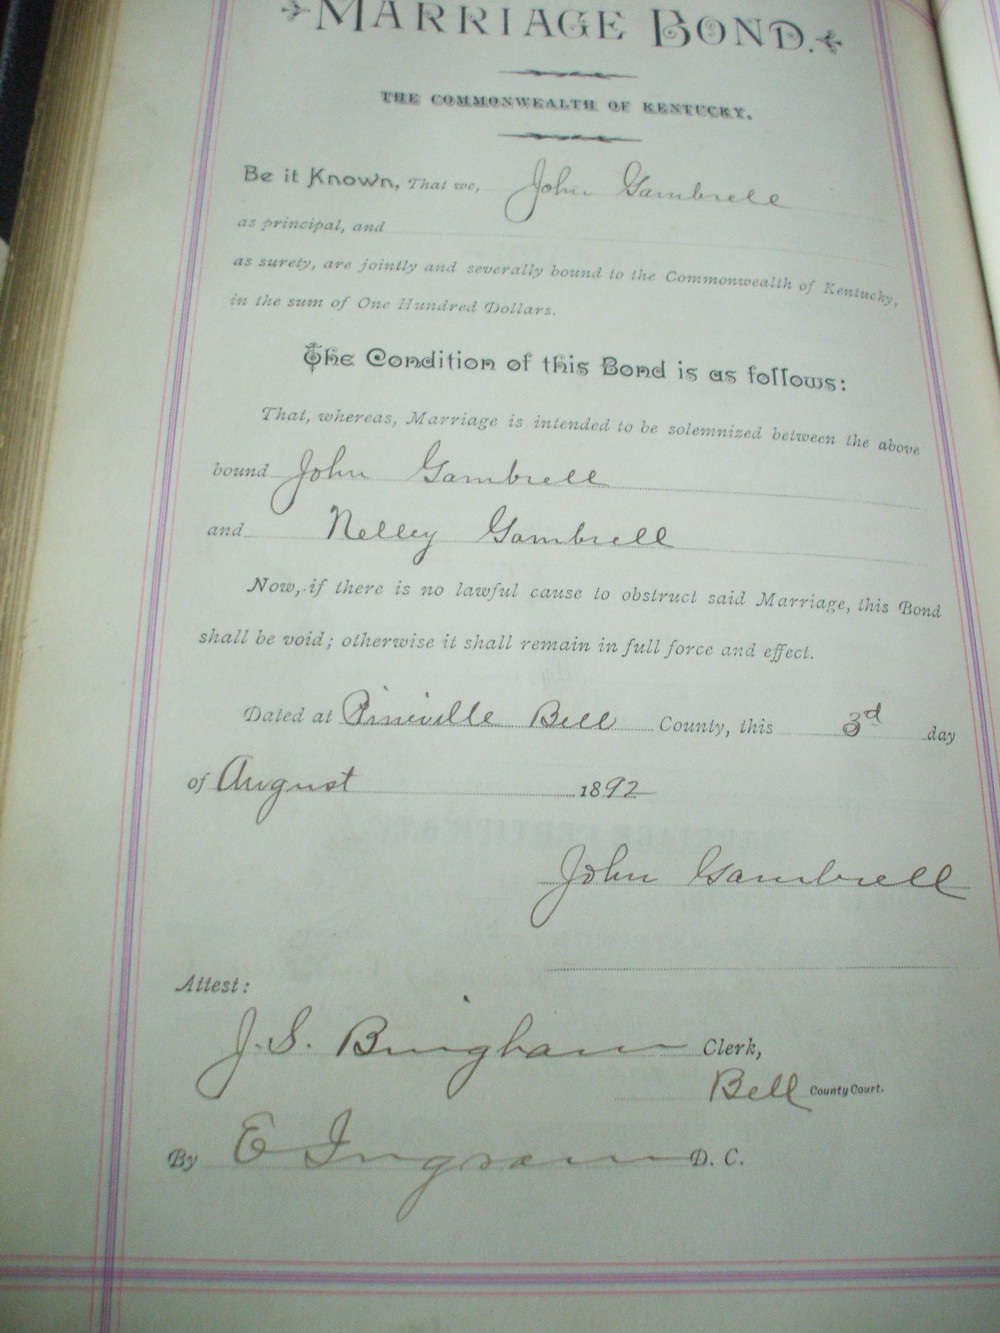 MARRIAGE BOND.
THE COMMONWEALTH OF KENTUCKY.
Be it Known, That we, John Gambrell
as principal, and
as surety, are jointly and severally bound to the Commonwealth of Kentucky,
in the sum of One Hundred Dollars.
The Condition of this Bond is as follows:
That, whereas, Marriage is intended to be solemnized between the above
bound John Gambrell
and Nelley Gambrell
Now, if there is no lawful cause to obstruct said Marriage, this Bond
shall be void; otherwise it shall remain in full force and effect.
Dated at Pineville Bell County, this 3rd day
of August 1892
John Gambrell
Attest:
J. S. Bingham Clerk,
Bell County Court.
By E Ingram D. C.